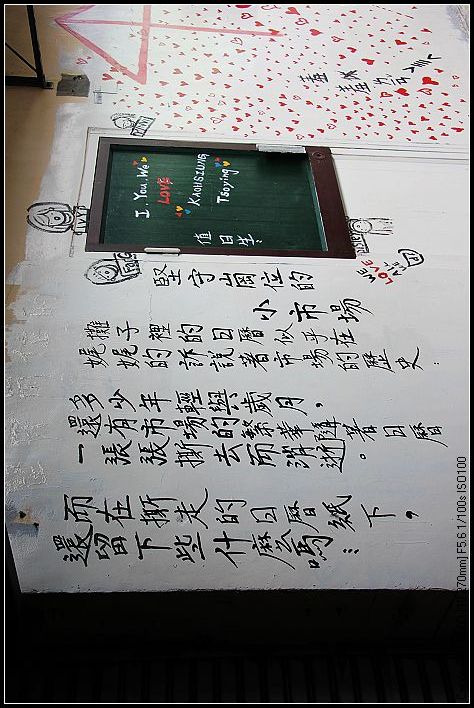 I. You. We
LOVE
KAOHSIUNG
Tsoying
值日生:
WE
LOVE
堅守崗位的
小市場
攤子裡的日曆似乎在
娓娓的訴說著市場的歷史.
多少年輕與歲月,
還有市場的繁華隨著日曆
一張張撕去而消逝。
而在撕走的日曆紙下,
還留下些什麼嗎…
270mm] F5.6 1/100s ISO100